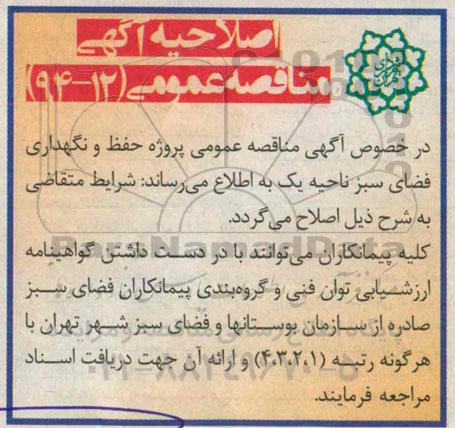 اصلاحیه آگهی
مناقصه عمومی (۱۲-۹۴)
در خصوص آگهی مناقصه عمومی پروژه حفظ و نگهداری
فضای سبز ناحیه یک به اطلاع می‌رساند: شرایط متقاضی
به شرح ذیل اصلاح می‌گردد.
کلیه پیمانکاران می‌توانند با در دست داشتن گواهینامه
ارزشیابی توان فنی و گروه‌بندی پیمانکاران فضای سبز
صادره از سازمان بوستانها و فضای سبز شهر تهران با
هرگونه رتبه (۴،۳،۲،۱) و ارائه آن جهت دریافت اسناد
مراجعه فرمایند.